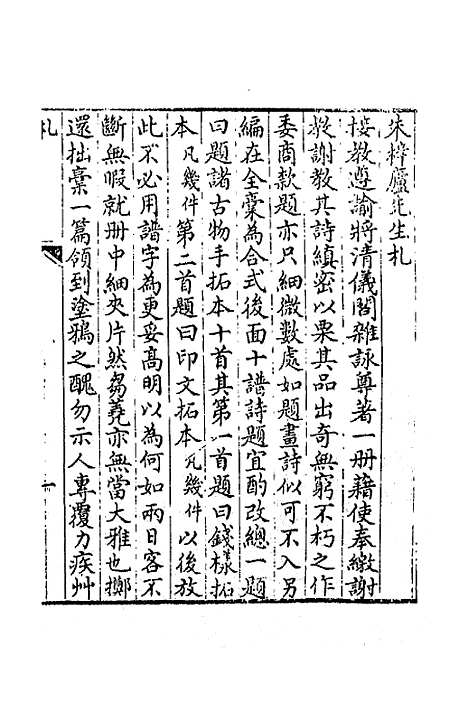 朱梓廬先生札
接教遵諭將清儀閣雜詠尊著一册藉使奉繳謝
教謝教其詩縝密以栗其品出奇無窮不朽之作
委商款題亦只細微數處如題畫詩似可不入另
編在全稾為合式後面十譜詩題宜酌改總一題
曰題諸古物手拓本十首其第一首題曰錢樣拓
本凡幾件第二首題曰印文拓本凡幾件以後放
此不必用譜字為更妥高明以為何如兩日客不
斷無暇就册中細夾片然芻蕘亦無當大雅也擲
還拙稾一篇領到塗鴉之醜勿示人專覆力疾艸
札
一